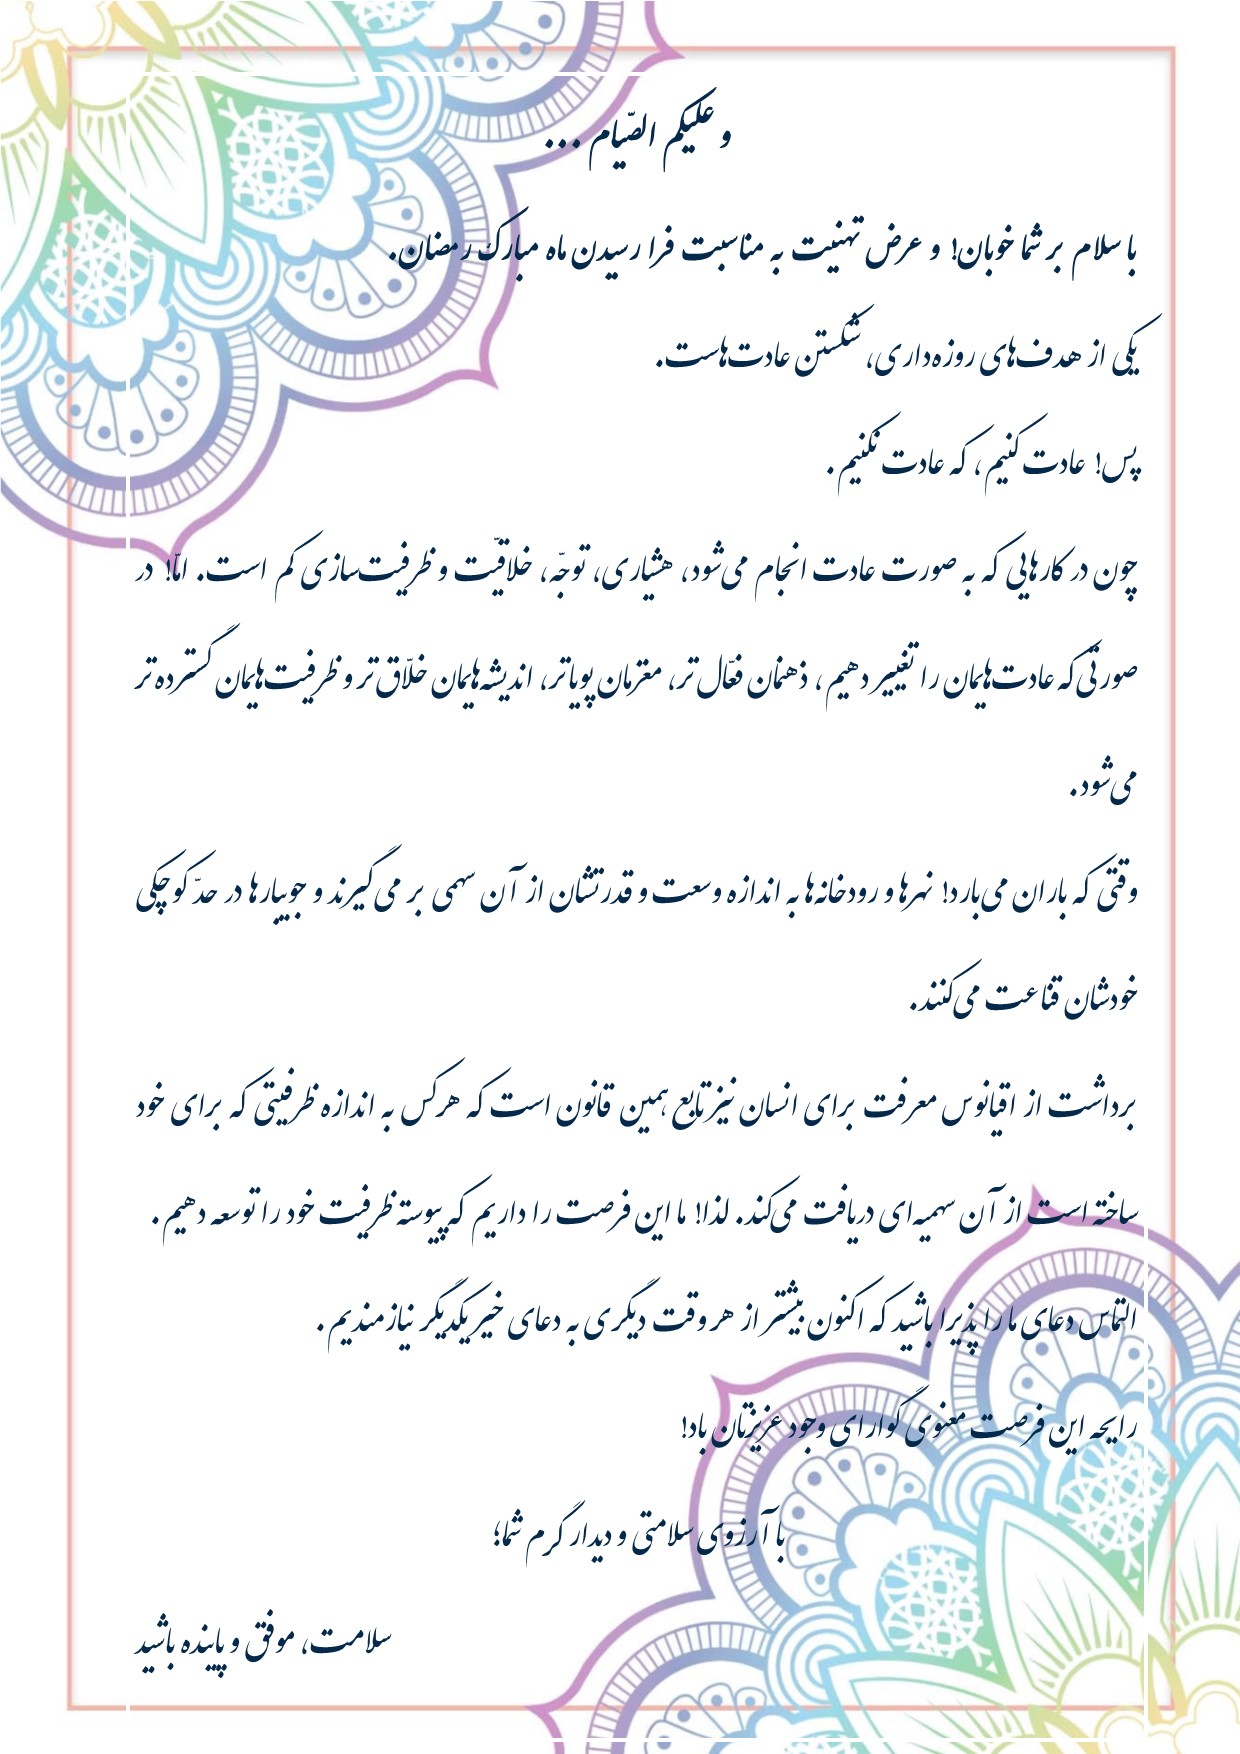 و علیکم الصّیام ...
با سلام بر شما خوبان! و عرض تهنیت به مناسبت فرا رسیدن ماه مبارک رمضان.
یکی از هدف‌های روزه‌داری، شکستن عادت‌هاست.
پس! عادت کنیم، که عادت نکنیم.
چون در کارهایی که به صورت عادت انجام می‌شود، هشیاری، توجّه، خلاقیّت و ظرفیت‌سازی کم است. امّا! در
صورتی‌که عادت‌هایمان را تغییر دهیم، ذهنمان فعّال‌تر، مغزمان پویاتر، اندیشه‌هایمان خلّاق‌تر و ظرفیت‌هایمان گسترده‌تر
می‌شود.
وقتی که باران می‌بارد! نهرها و رودخانه‌ها به اندازه وسعت و قدرتشان از آن سهمی بر می‌گیرند و جویبارها در حدّ کوچکی
خودشان قناعت می‌کنند.
برداشت از اقیانوس معرفت برای انسان نیز تابع همین قانون است که هرکس به اندازه ظرفیتی که برای خود
ساخته است از آن سهمیه‌ای دریافت می‌کند. لذا! ما این فرصت را داریم که پیوسته ظرفیت خود را توسعه دهیم.
التماس دعای ما را پذیرا باشید که اکنون بیشتر از هر وقت دیگری به دعای خیر یکدیگر نیازمندیم.
رایحه این فرصت معنوی گوارای وجود عزیزتان باد!
با آرزوی سلامتی و دیدار گرم شما؛
سلامت، موفق و پاینده باشید